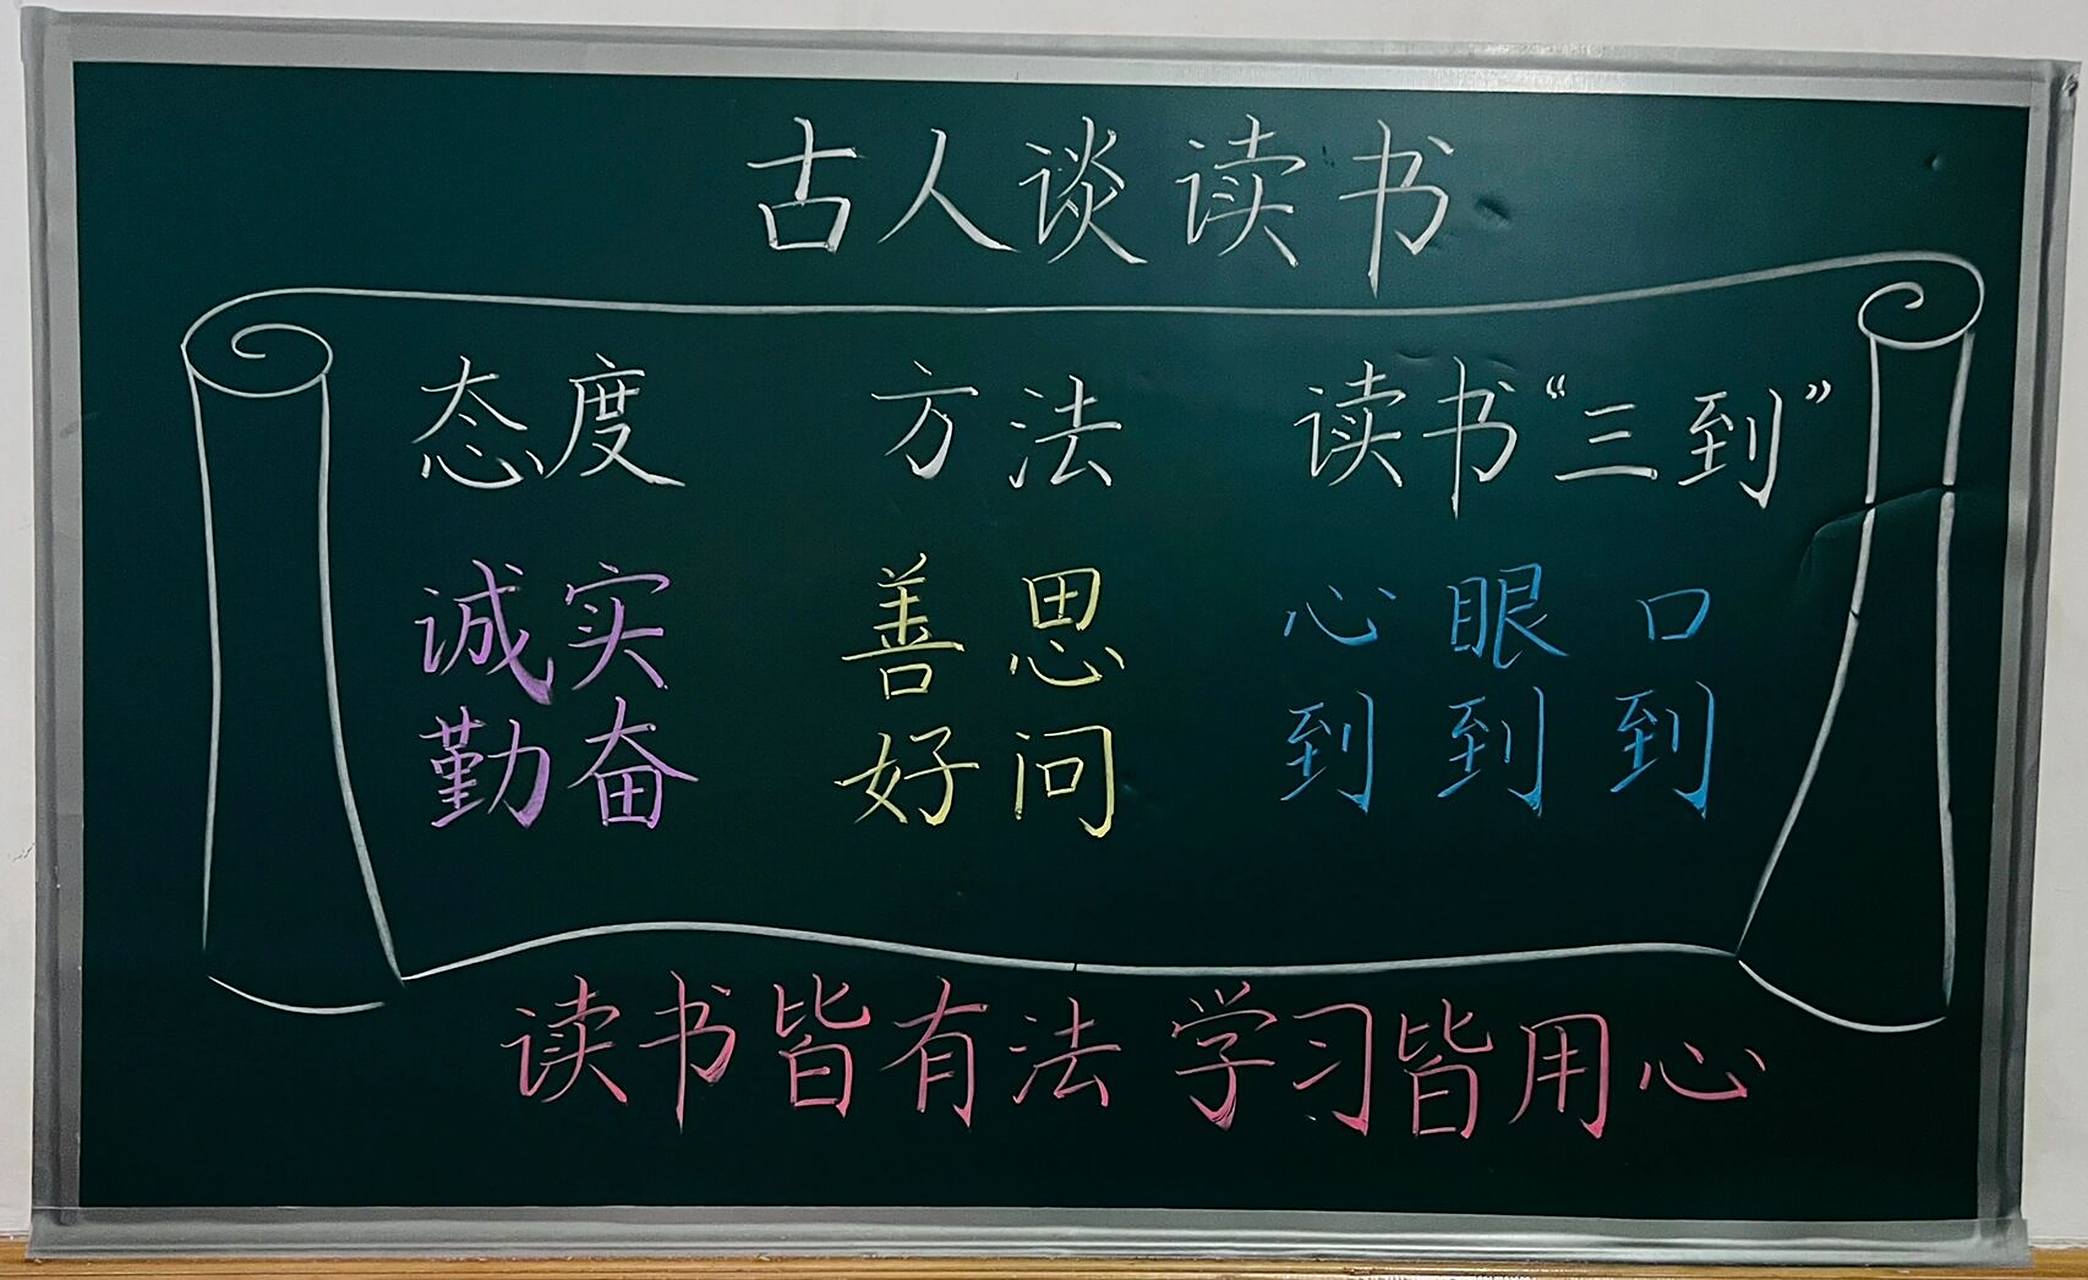 古人谈读书
态度 方法 读书“三到”
诚实 善思 心 眼 口
勤奋 好问 到 到 到
读书皆有法 学习皆用心